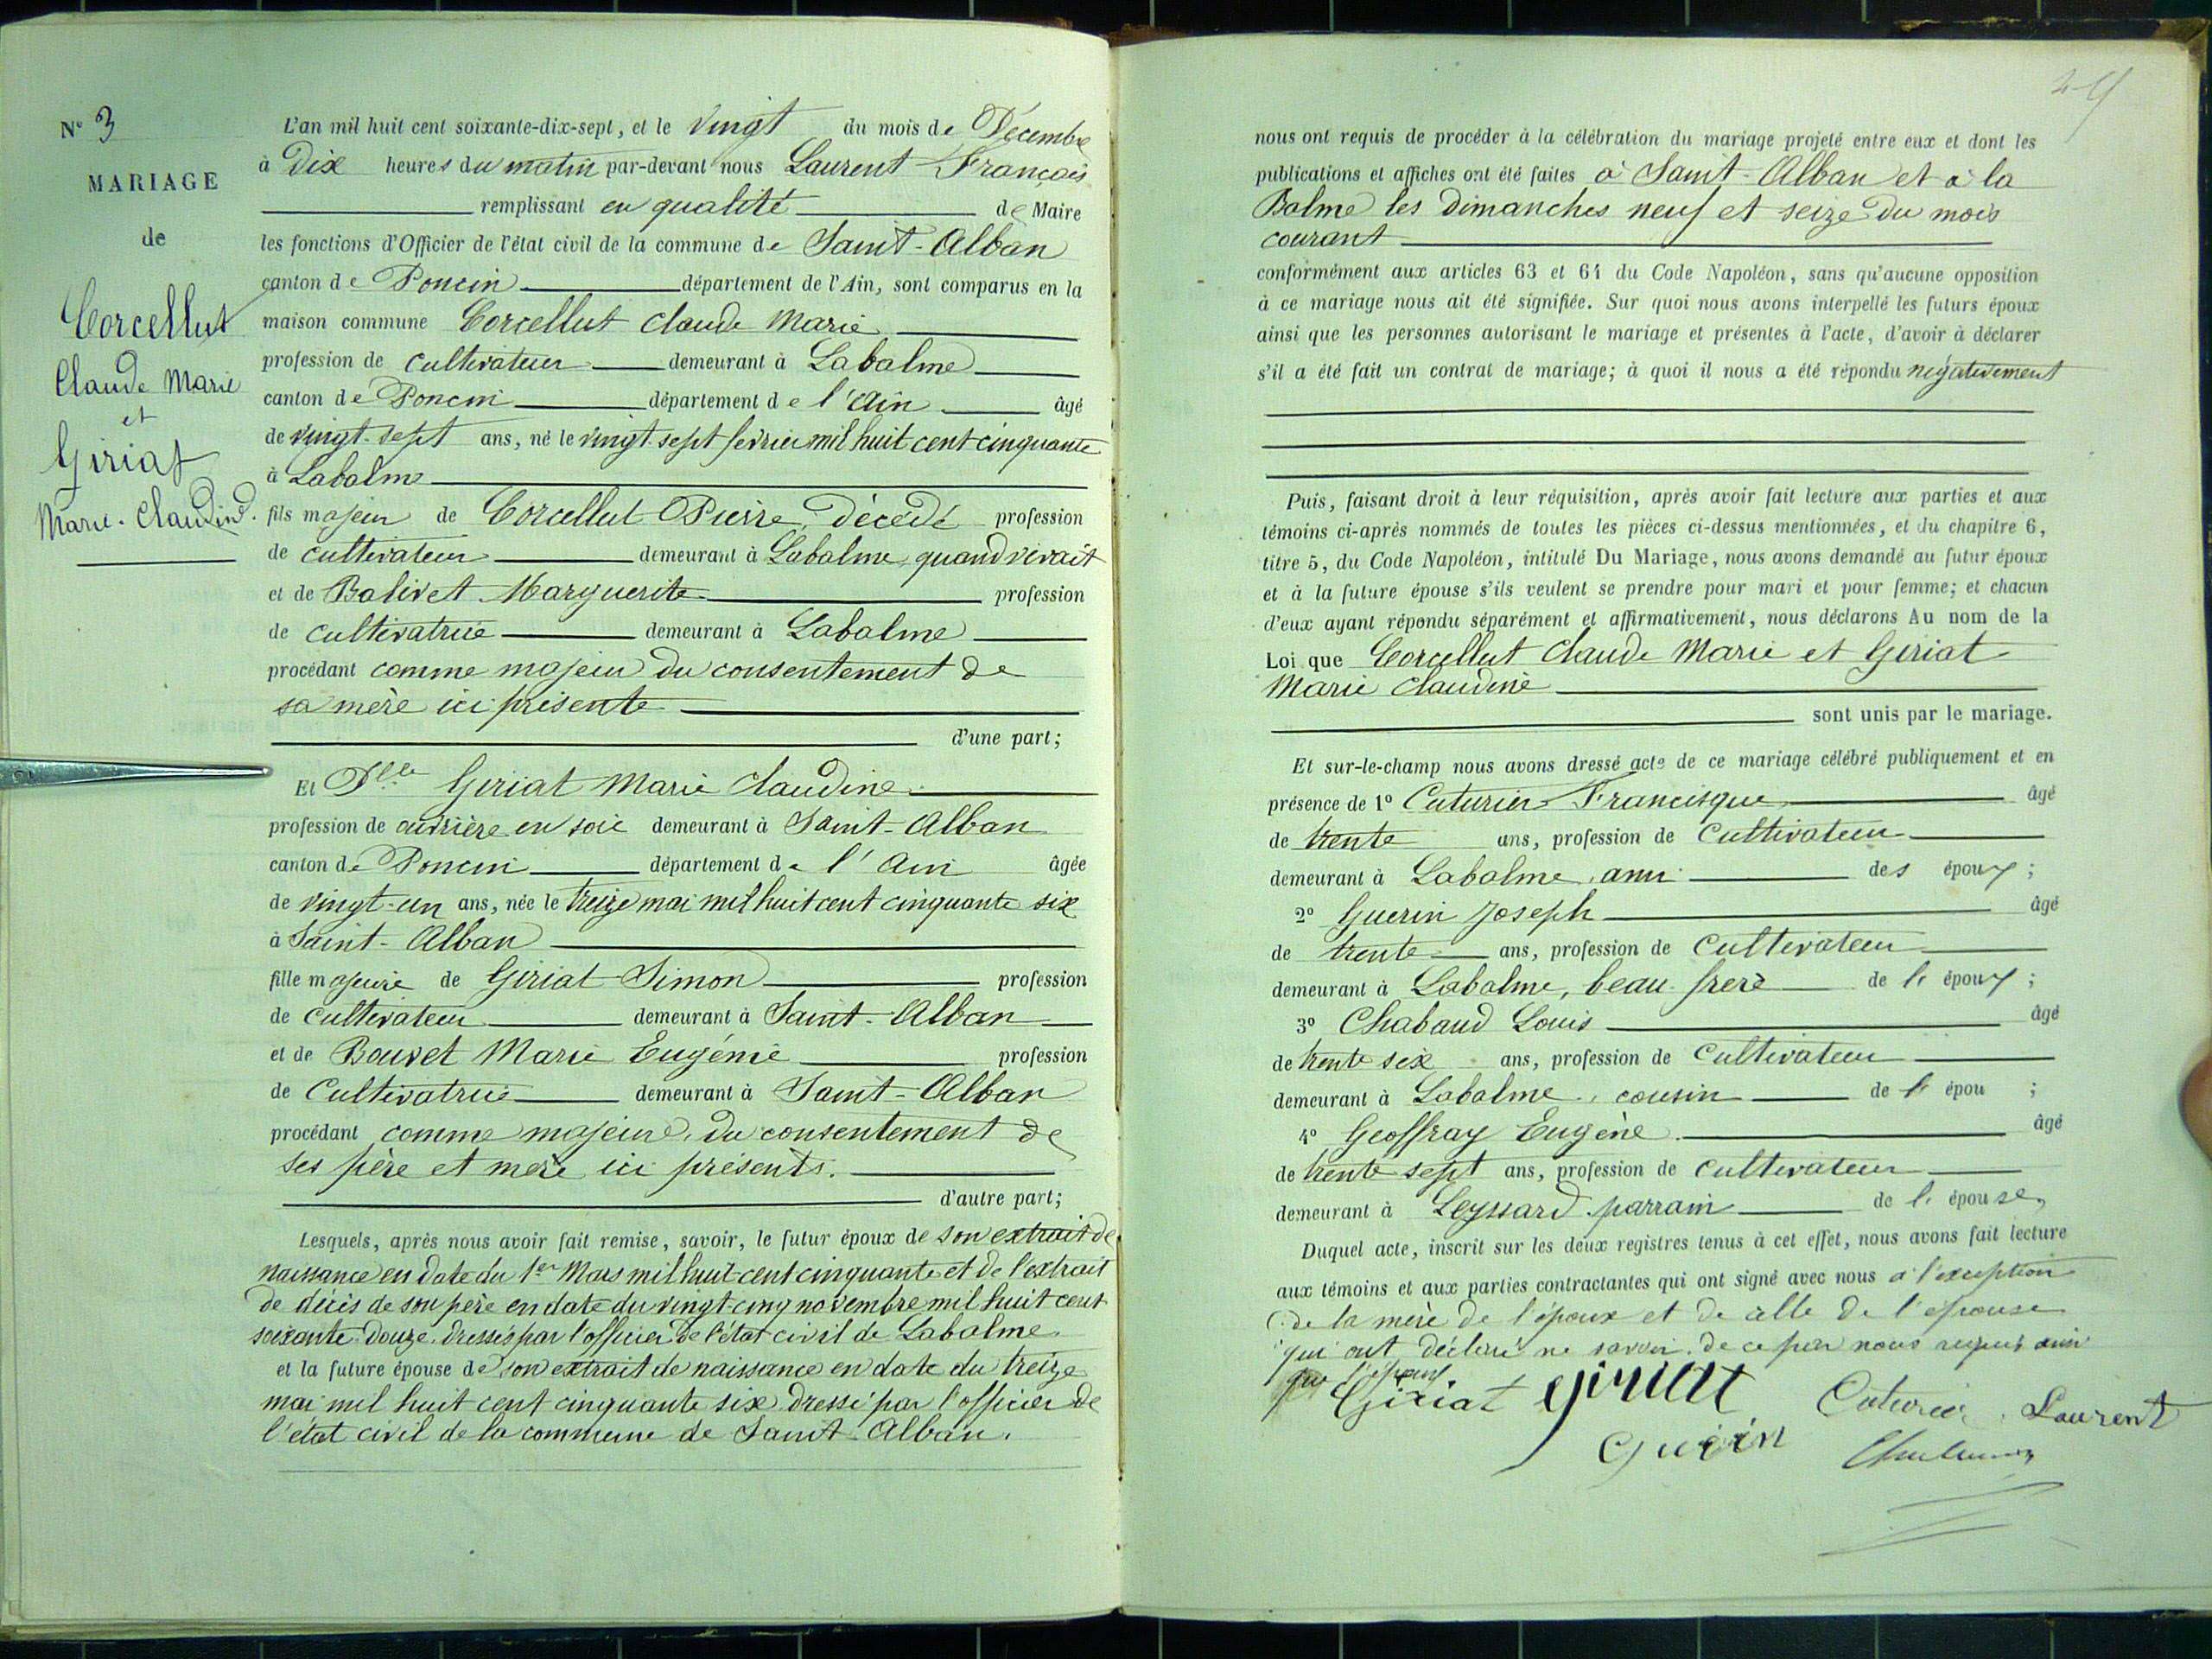 N° 3
MARIAGE
de
Corcellut
Claude Marie
et
Giriat
Marie-Claudine.
L'an mil huit cent soixante-dix-sept, et le vingt du mois de Décembre
à Dix heures du matin par-devant nous Laurent François
remplissant en qualité de Maire
les fonctions d'Officier de l'état civil de la commune de Saint-Alban
canton de Poncin département de l'Ain, sont comparus en la
maison commune Corcellut Claude Marie
profession de cultivateur demeurant à Labalme
canton de Poncin département de l'Ain âgé
de vingt-sept ans, né le vingt-sept fevrier mil huit cent cinquante
à Labalme
fils majeur de Corcellut Pierre, décédé profession
de cultivateur demeurant à Labalme, quand vivait
et de Balivet Marguerite profession
de cultivatrice demeurant à Labalme
procédant comme majeur du consentement de
sa mère ici présente
d'une part;
Et Dlle Giriat Marie Claudine
profession de ouvrière en soie demeurant à Saint-Alban
canton de Poncin département de l'Ain âgée
de vingt-un ans, née le treize mai mil huit cent cinquante six
à Saint-Alban
fille majeure de Giriat Simon profession
de cultivateur demeurant à Saint-Alban
et de Bouvet Marie Eugénie profession
de Cultivatrice demeurant à Saint-Alban
procédant comme majeure, du consentement de
ses père et mère ici présents.
d'autre part;
Lesquels, après nous avoir fait remise, savoir, le futur époux de son extrait de
naissance en date du 1er Mars mil huit cent cinquante et de l'extrait
de décès de son père en date du vingt-cinq novembre mil huit cent
soixante-douze, dressés par l'officier de l'état civil de Labalme
et la future épouse de son extrait de naissance en date du treize
mai mil huit cent cinquante six dressé par l'officier de
l'état civil de la commune de Saint-Alban.
nous ont requis de procéder à la célébration du mariage projeté entre eux et dont les
publications et affiches ont été faites à Saint-Alban et à la
Balme les dimanches neuf et seize du mois
courant
conformément aux articles 63 et 64 du Code Napoléon, sans qu'aucune opposition
à ce mariage nous ait été signifiée. Sur quoi nous avons interpellé les futurs époux
ainsi que les personnes autorisant le mariage et présentes à l'acte, d'avoir à déclarer
s'il a été fait un contrat de mariage; à quoi il nous a été répondu négativement
Puis, faisant droit à leur réquisition, après avoir fait lecture aux parties et aux
témoins ci-après nommés de toutes les pièces ci-dessus mentionnées, et du chapitre 6,
titre 5, du Code Napoléon, intitulé Du Mariage, nous avons demandé au futur époux
et à la future épouse s'ils veulent se prendre pour mari et pour femme; et chacun
d'eux ayant répondu séparément et affirmativement, nous déclarons Au nom de la
Loi que Corcellut Claude Marie et Giriat
Marie Claudine
sont unis par le mariage.
Et sur-le-champ nous avons dressé acte de ce mariage célébré publiquement et en
présence de 1° Cuturier Francisque âgé
de trente ans, profession de Cultivateur
demeurant à Labalme, ami des époux;
2° Guerin Joseph âgé
de trente ans, profession de Cultivateur
demeurant à Labalme, beau-frere de l'époux;
3° Chabaud Louis âgé
de trente six ans, profession de Cultivateur
demeurant à Labalme, cousin de l'épou;
4° Geoffray Eugène âgé
de trente sept ans, profession de Cultivateur
demeurant à Leyssard parrain de l'épouse,
Duquel acte, inscrit sur les deux registres tenus à cet effet, nous avons fait lecture
aux témoins et aux parties contractantes qui ont signé avec nous à l'exception
de la mère de l'époux et de celle de l'épouse
qui ont déclaré ne savoir de ce par nous requis ainsi
que l'époux
Giriat Giriat Cuturier Laurent
Guérin